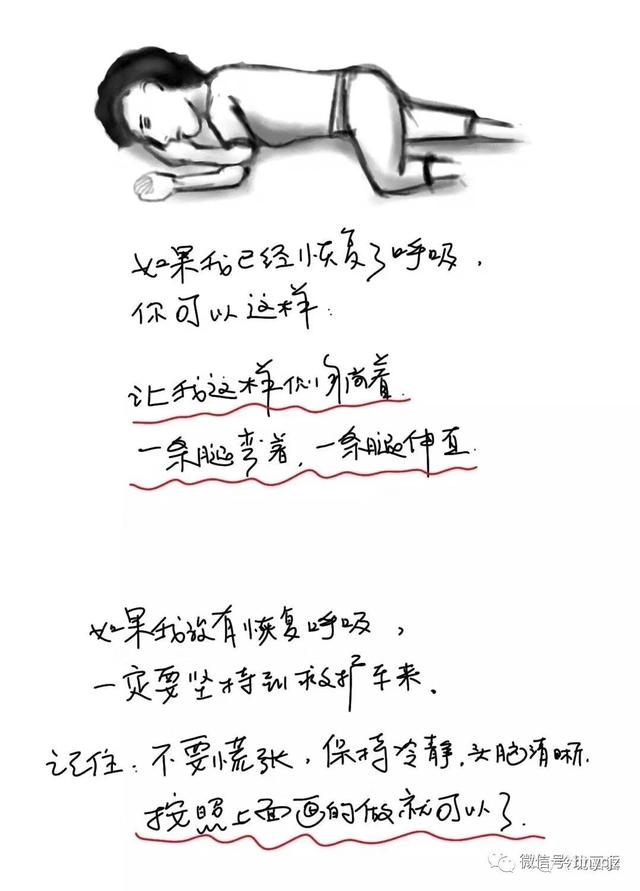 如果我已经恢复了呼吸，
你可以这样：
让我这样侧躺着.
一条腿弯着，一条腿伸直
如果我没有恢复呼吸，
一定要坚持到救护车来.
记住：不要慌张，保持冷静，头脑清晰.
按照上面画的做就可以了.
微信号: